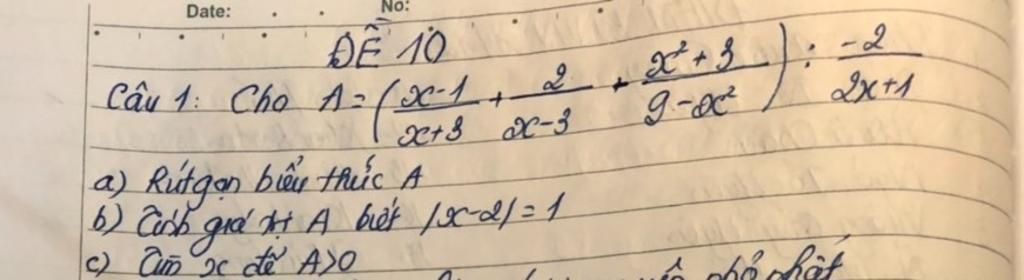 Date: No:
ĐỀ 10
Câu 1: Cho A = ( x-1 / x+3 + 2 / x-3 + x² + 3 / 9-x² ) : -2 / 2x+1
a) Rút gọn biểu thức A
b) Tính giá trị A biết |x-2| = 1
c) Tìm x để A>0
nhỏ nhất